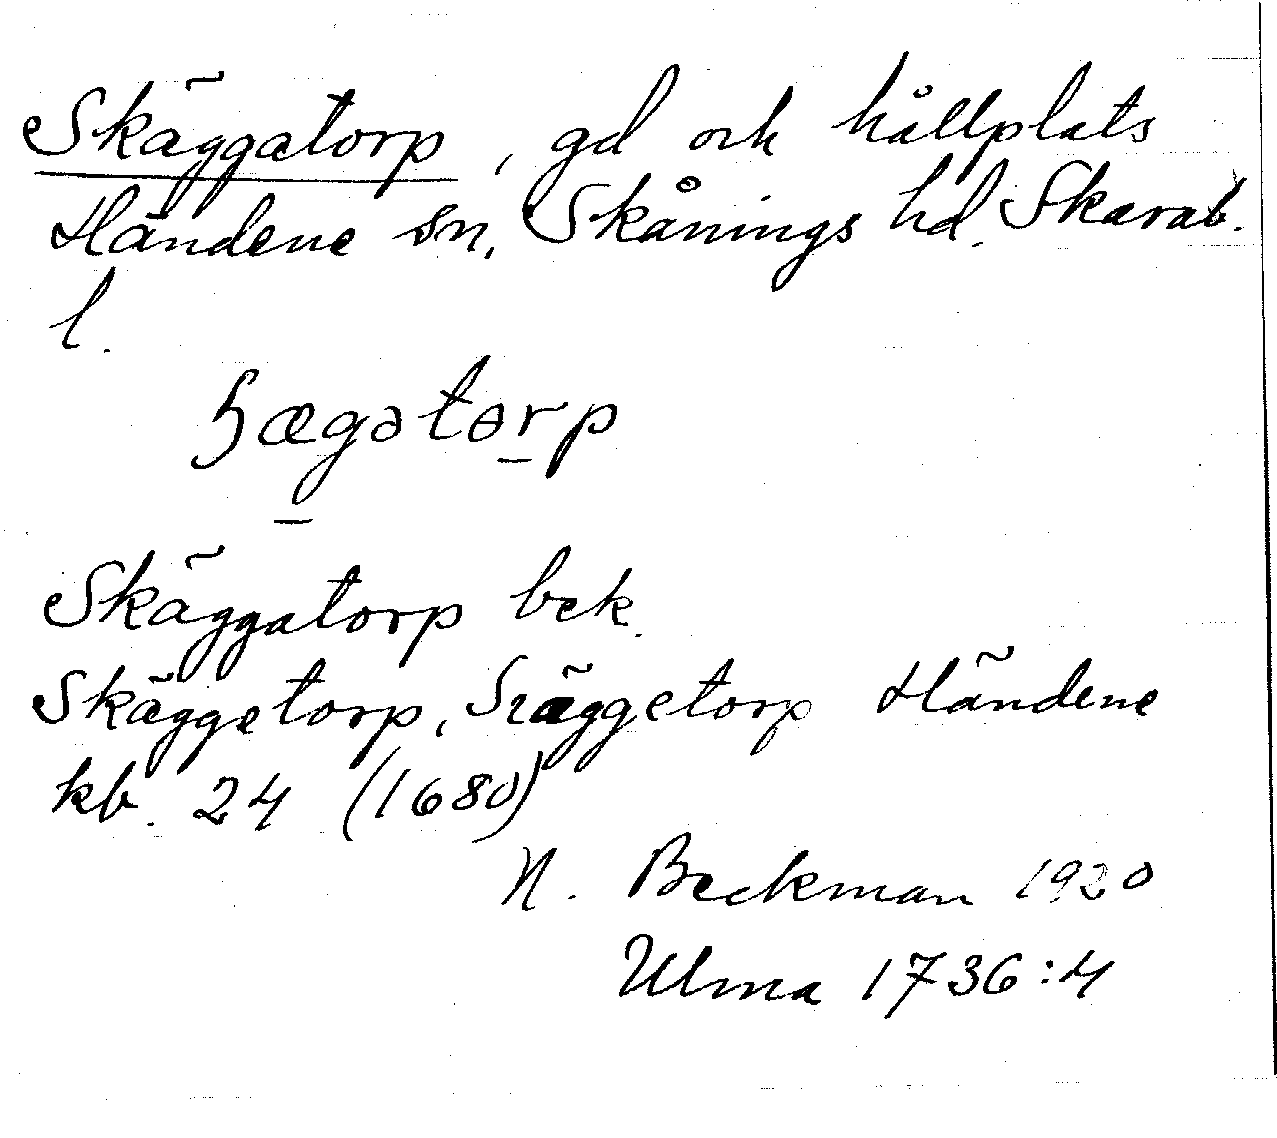 Skäggatorp, gd och hållplats
Händene sn, Skånings hd. Skarab.
l.
Skäggatorp bek.
Skäggetorp, Sräggetorp Händene
kb. 24 (1680)
N. Beckman 1920
Ulma 1736:4